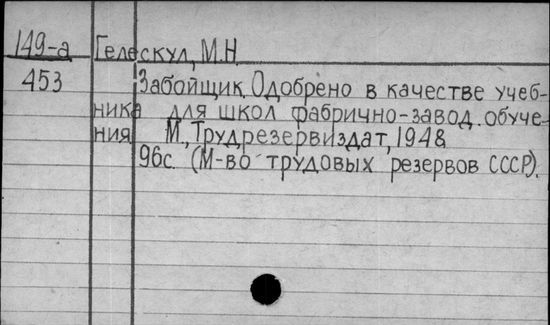 149-а Гелескул, М.Н.
453 Забойщик. Одобрено в качестве учеб-
ника для школ фабрично-завод. обуче-
ния. М., Трудрезервиздат, 1948.
96с. (М-во трудовых резервов СССР).